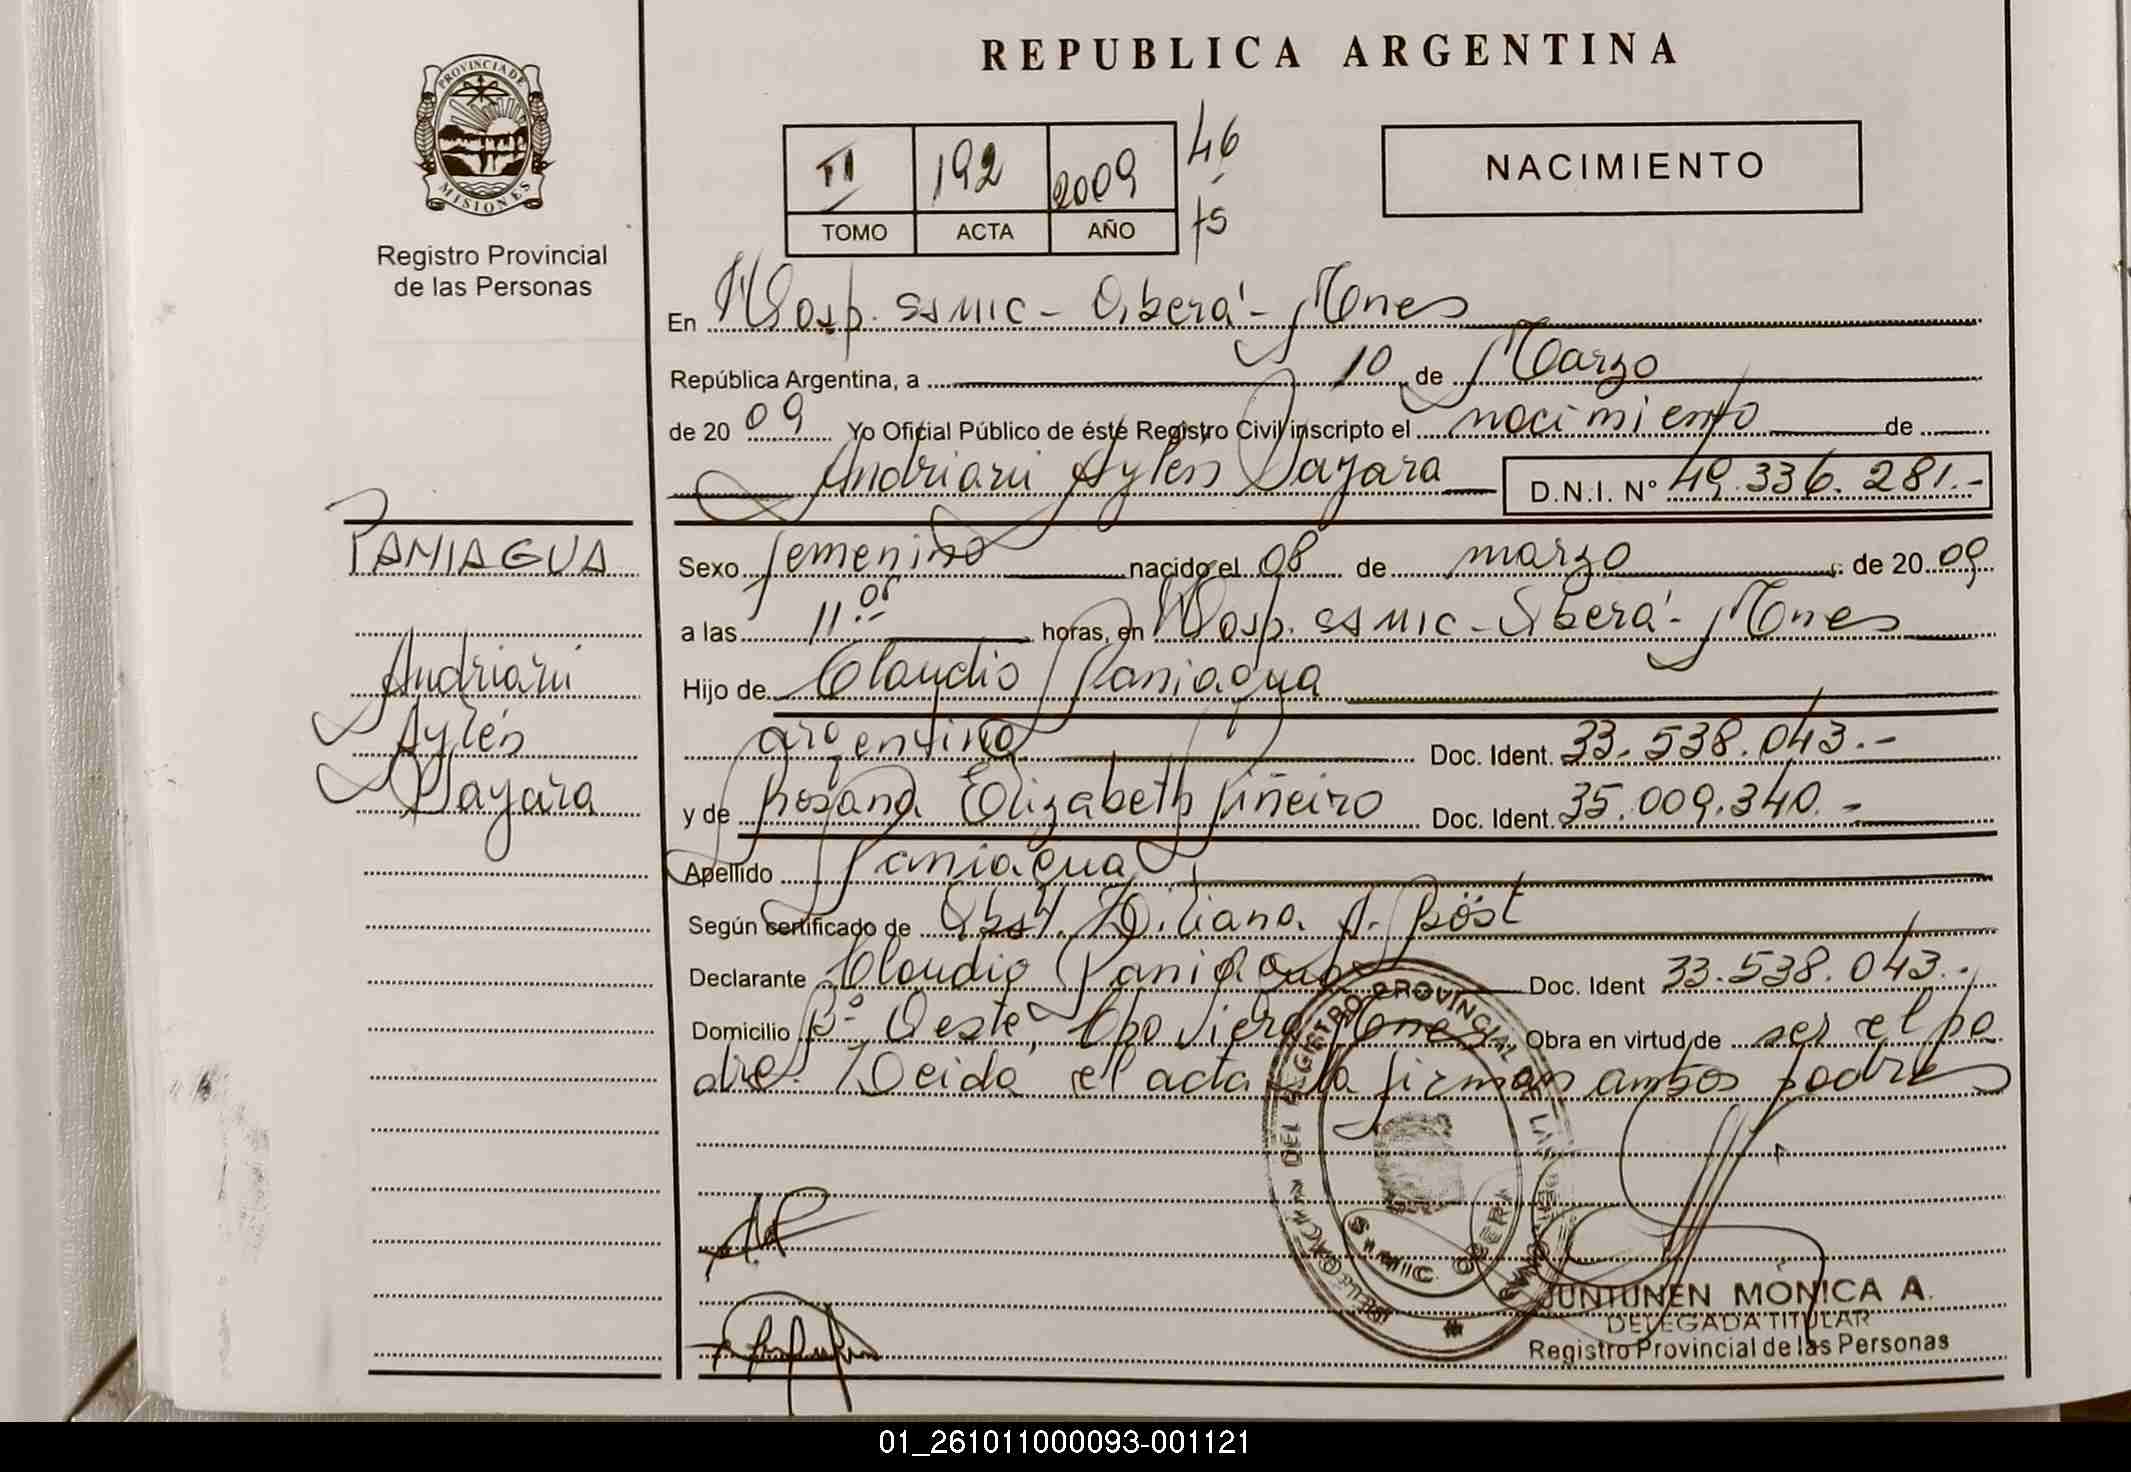 REPUBLICA ARGENTINA
PROVINCIA DE
MISIONES
Registro Provincial
de las Personas
II 192 2009 46
TOMO ACTA AÑO
NACIMIENTO
En Hosp. SAMIC - Oberá - Mnes
República Argentina, a 10 de Marzo
de 20 09 Yo Oficial Público de éste Registro Civil inscripto el nacimiento de
Aylén Nayara D.N.I. Nº 49.336.281.-
PANIAGUA
Aylén
Nayara
Sexo femenino nacido el 08 de marzo de 20 09
a las 11 horas, en Hosp. SAMIC - Oberá - Mnes
Hijo de Claudio Paniagua
argentino Doc. Ident. 33.538.043.-
y de Rosana Elizabeth Piñeiro Doc. Ident. 35.009.340.-
Apellido Paniagua
Según certificado de Obst. Liliana A. Böst
Declarante Claudio Paniagua Doc. Ident 33.538.043.-
Domicilio Bº Oeste, Cpo Viera Mnes Obra en virtud de ser el pa
dre. Leída el acta la firman ambos padres
DELEGACION DEL REGISTRO PROVINCIAL DE LAS PERSONAS
SAMIC OBERA
JUNTUNEN MONICA A.
DELEGADA TITULAR
Registro Provincial de las Personas
01_261011000093-001121